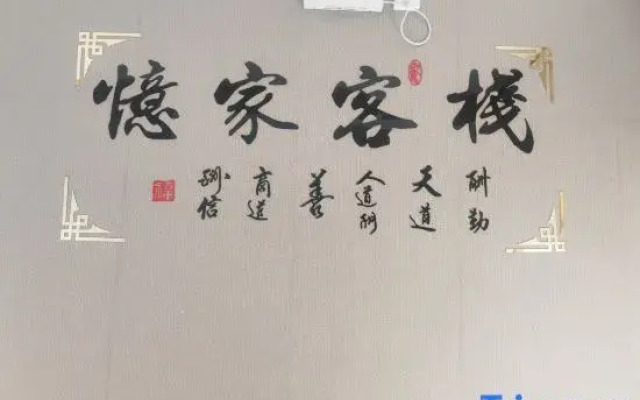 憶家客棧
酬勤
天道
人道酬
善
商道
酬信